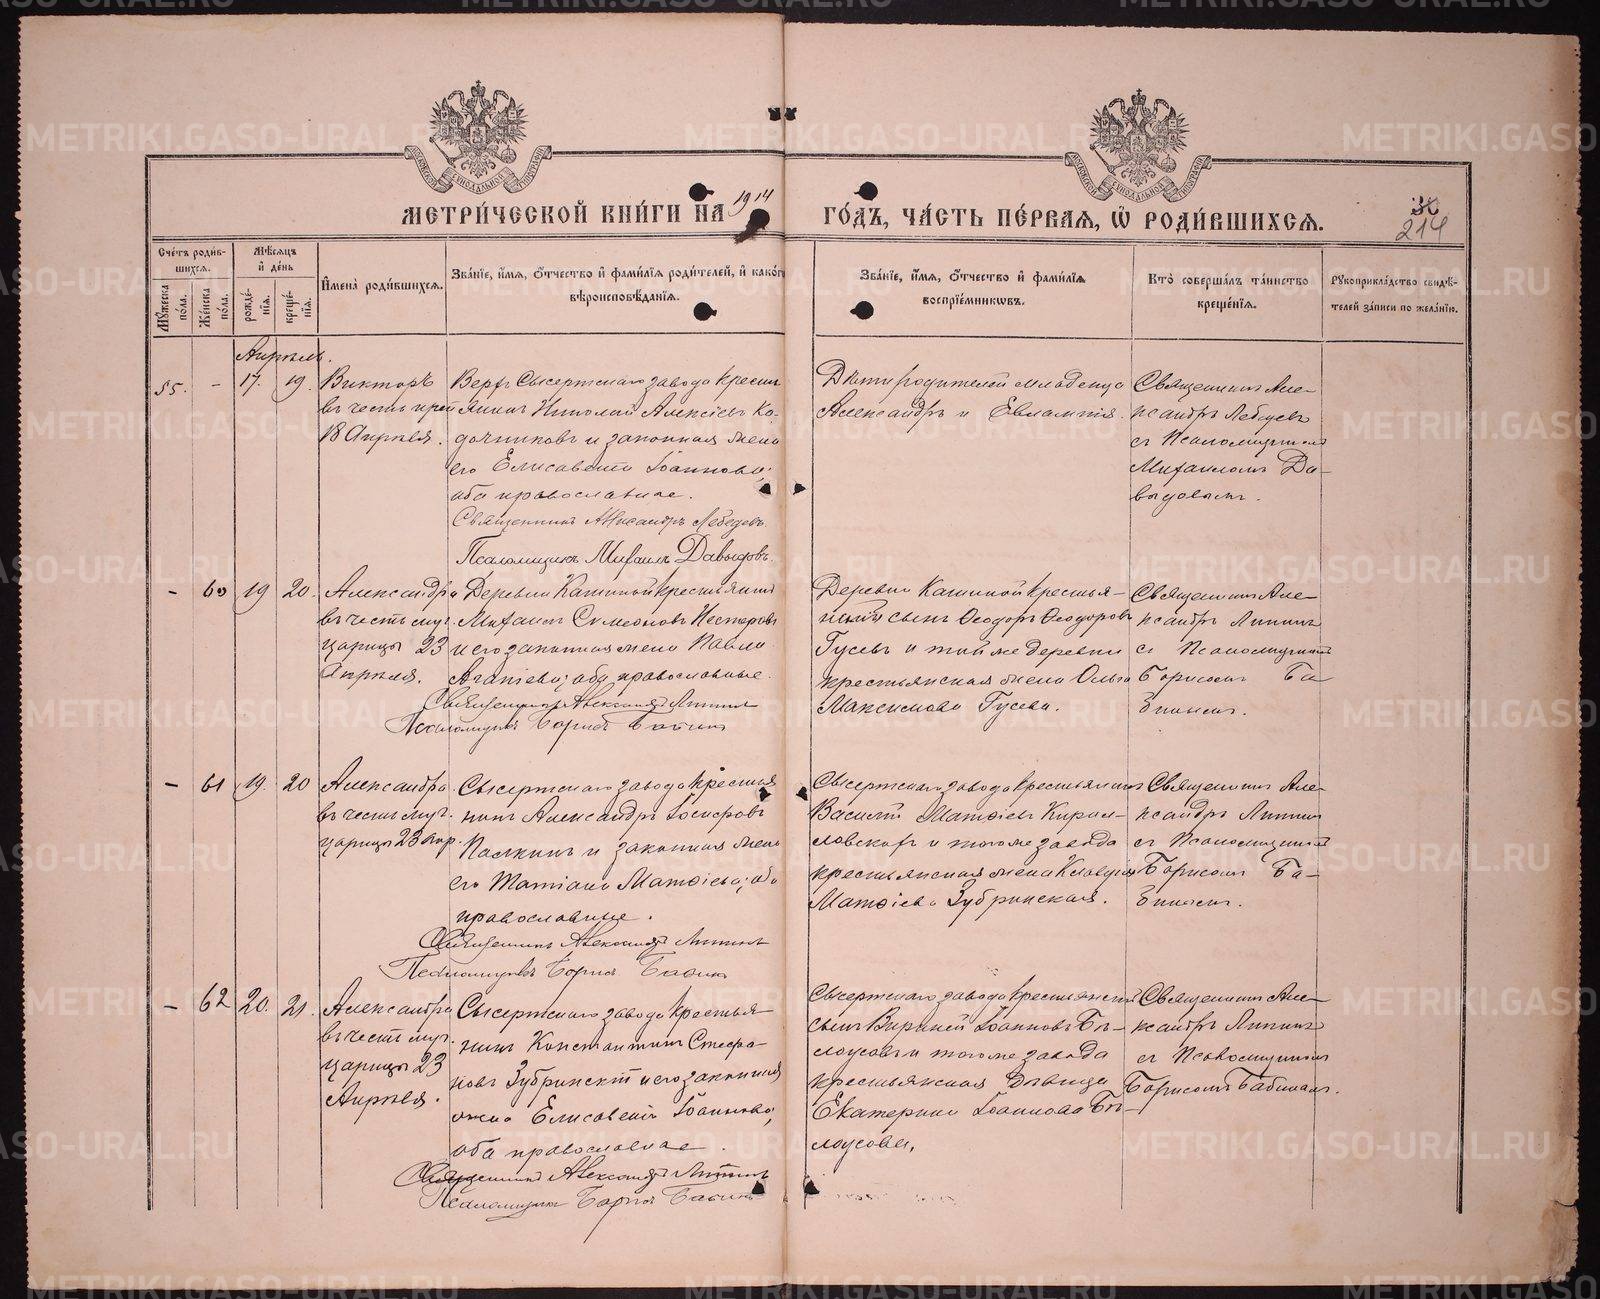 МЕТРИ́ЧЕСКОЙ КНИ́ГИ НА 1914 ГО́ДЪ, ЧА́СТЬ ПЕ́РВАЯ, Ѡ РОДИ́ВШИХСЯ.
214
Сче́тъ роди́в-
шихся.
Мꙋ́жеска
по́ла.
Же́нска
по́ла.
Мѣ́сяцъ
и де́нь
рожде́-
нїя.
креще́-
нїя.
Имена̀ роди́вшихся.
Зва́нїе, и́мя, о́тчество и фами́лїя роди́телей, и како́гѡ
вѣроисповѣ́данїя.
Зва́нїе, и́мя, о́тчество и фами́лїя
воспрїе́мникѡвъ.
Кто̀ соверша́лъ та́инство
креще́нїя.
Рꙋкоприкла́дство свидѣ́-
телей за́писи по жела́нїю.
Апрѣль.
55. - 17. 19.
Викторъ
въ честь преп
18 Апрѣля.
Верхъ Сысертскаго завода крестья
янинъ Николай Алексіевъ Ко-
дочниковъ и законная жена
его Елисавета Іоаннова;
оба православные.
Священникъ Александръ Лебедевъ
Псаломщикъ Михаилъ Давыдовъ.
Дѣти родителей младенца
Александръ и Евлампія.
Священникъ Але-
ксандръ Лебедевъ
съ Псаломщикомъ
Михаиломъ Да-
выдовымъ.
- 60 19 20.
Александра
въ честь муч.
царицы 23
Апрѣля.
Деревни Кашиной крестьянинъ
Михаилъ Симеоновъ Нестеровъ
и его законная жена Павла
Ананіева; оба православные.
Священникъ Александръ Липинъ
Псаломщикъ Борисъ Бабинъ
Деревни Кашиной крестья-
нскій сынъ Ѳеодоръ Ѳеодоровъ
Гусевъ и той же деревни
крестьянская жена Ольга
Максимова Гусева.
Священникъ Але-
ксандръ Липинъ
съ Псаломщикомъ
Борисомъ Ба-
бинымъ.
- 61 19. 20
Александра
въ честь муч.
царицы 23 Апр.
Сысертскаго завода крестья
нинъ Александръ Іосифовъ
Палкинъ и законная жена
его Татіана Матѳіева; оба
православные.
Священникъ Александръ Липинъ
Псаломщикъ Борисъ Бабинъ
Сысертскаго завода крестьянинъ
Василій Матѳіевъ Кирил-
ловскихъ и того же завода
крестьянская жена Клавдія
Матѳіева Зубринская.
Священникъ Але-
ксандръ Липинъ
съ Псаломщикомъ
Борисомъ Ба-
бинымъ.
- 62 20. 21.
Александра
въ честь муч.
царицы 23
Апрѣля.
Сысертскаго завода крестья-
нинъ Константинъ Стефа-
новъ Зубринскій и его законная
жена Елисавета Іоаннова;
оба православные.
Священникъ Александръ Липинъ
Псаломщикъ Борисъ Бабинъ
Сысертскаго завода крестьянскій
сынъ Іоанновъ Бѣ-
лоусовъ и того же завода
крестьянская дѣвица
Екатерина Іоаннова Бѣ-
лоусова.
Священникъ Але-
ксандръ Липинъ
съ Псаломщикомъ
Борисомъ Бабинымъ.
METRIKI.GASO-URAL.RU